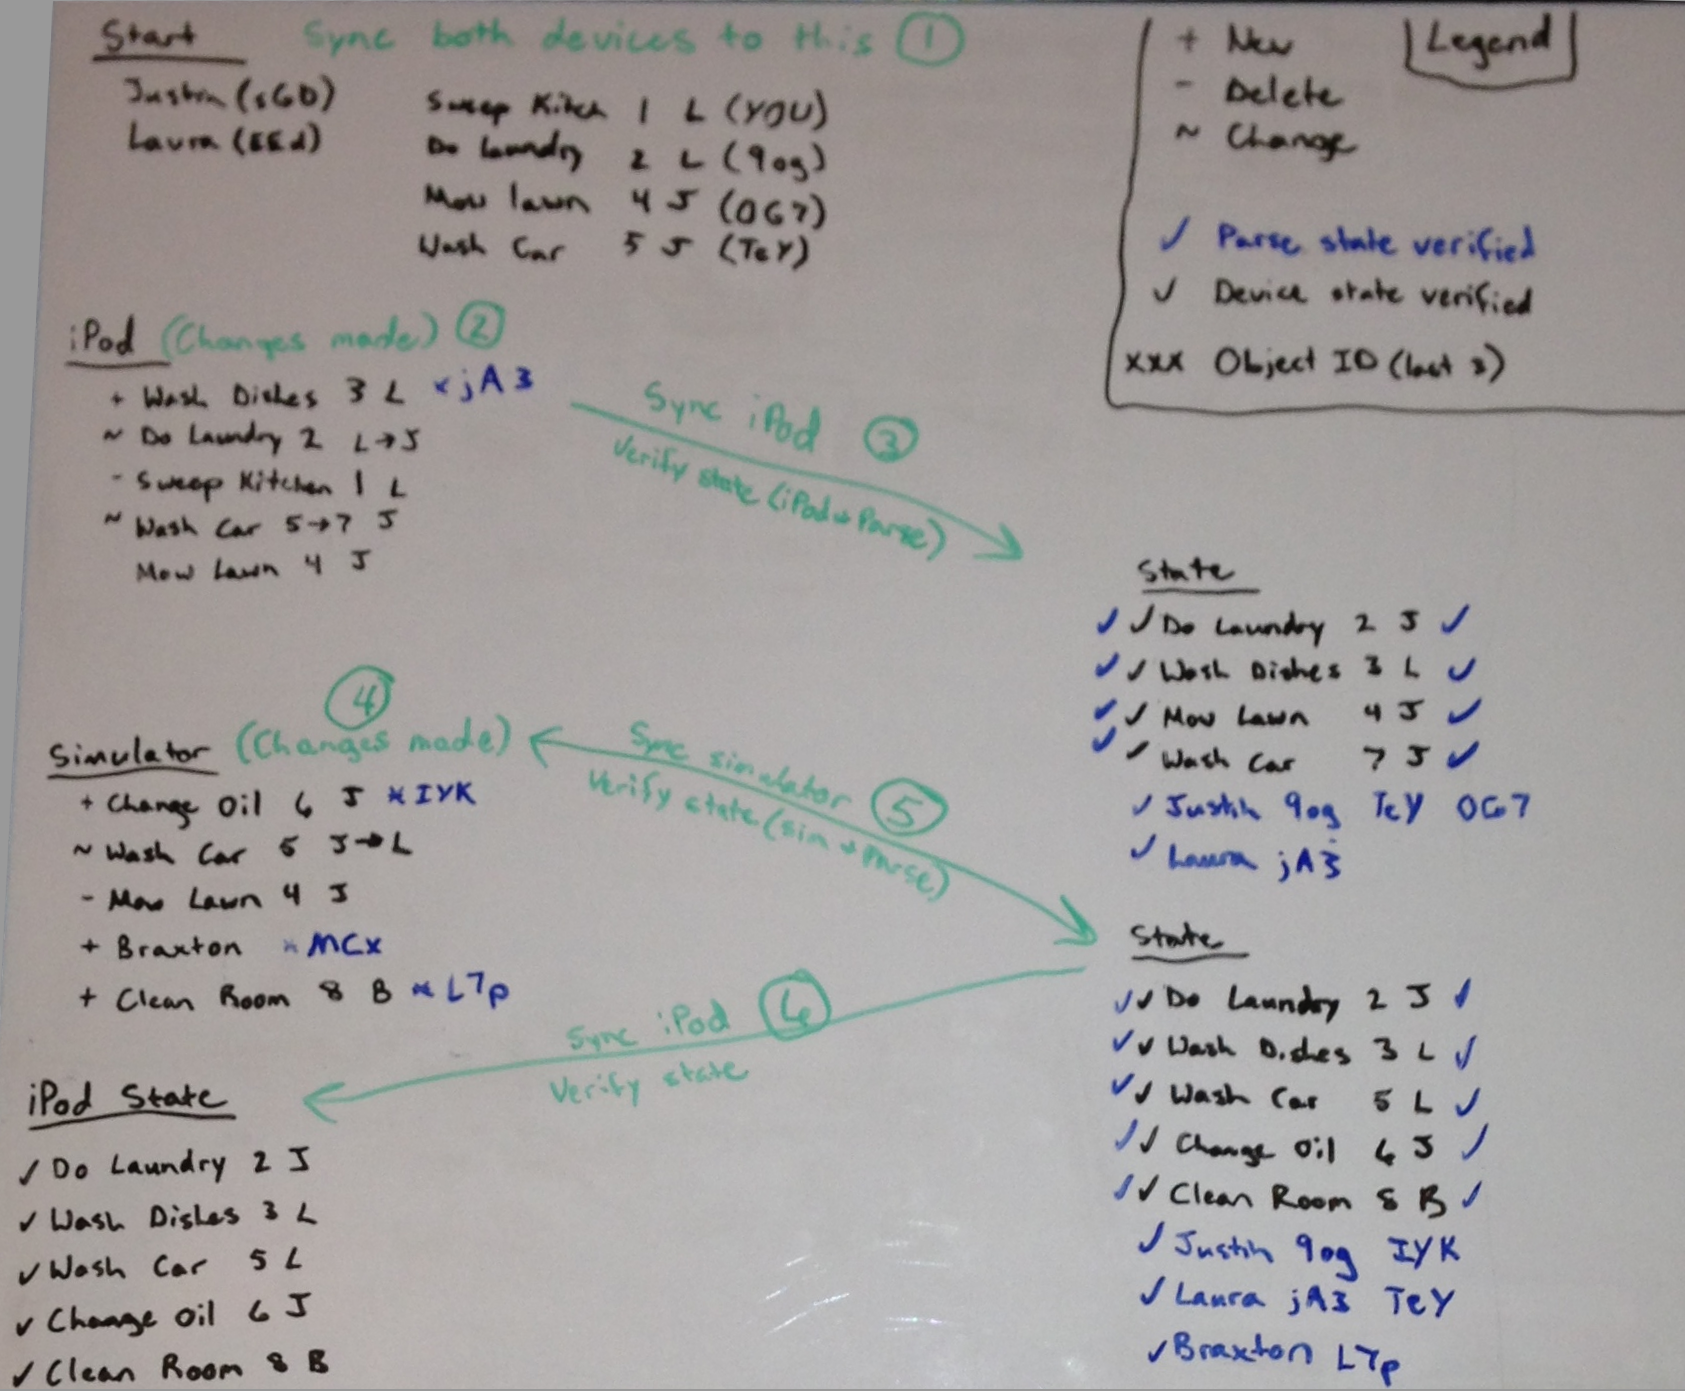 Start Sync both devices to this 1
Justin (sGD)
Laura (EEd)
Sweep Kitch 1 L (YOU)
Do laundry 2 L (9og)
Mow lawn 4 J (OG7)
Wash Car 5 J (TeY)
Legend
+ New
- Delete
~ Change
✓ Parse state verified
✓ Device state verified
xxx Object ID (last 3)
iPod (Changes made) 2
+ Wash Dishes 3 L * jA3
~ Do Laundry 2 L→J
- Sweep Kitchen 1 L
~ Wash Car 5→7 J
Mow Lawn 4 J
Sync iPod 3
Verify state (iPod + Parse)
State
✓ ✓ Do Laundry 2 J ✓
✓ ✓ Wash Dishes 3 L ✓
✓ ✓ Mow Lawn 4 J ✓
✓ ✓ Wash Car 7 J ✓
✓ Justin 9og TeY OG7
✓ Laura jA3
4
Simulator (Changes made)
+ Change Oil 6 J * IYK
~ Wash Car 5 J→L
- Mow Lawn 4 J
+ Braxton * MCx
+ Clean Room 8 B * L7p
Sync simulator 5
Verify state (sim + Parse)
State
✓ ✓ Do Laundry 2 J ✓
✓ ✓ Wash Dishes 3 L ✓
✓ ✓ Wash Car 5 L ✓
✓ ✓ Change Oil 6 J ✓
✓ ✓ Clean Room 8 B ✓
✓ Justin 9og IYK
✓ Laura jA3 TeY
✓ Braxton L7p
Sync iPod 6
Verify state
iPod State
✓ Do Laundry 2 J
✓ Wash Dishes 3 L
✓ Wash Car 5 L
✓ Change Oil 6 J
✓ Clean Room 8 B